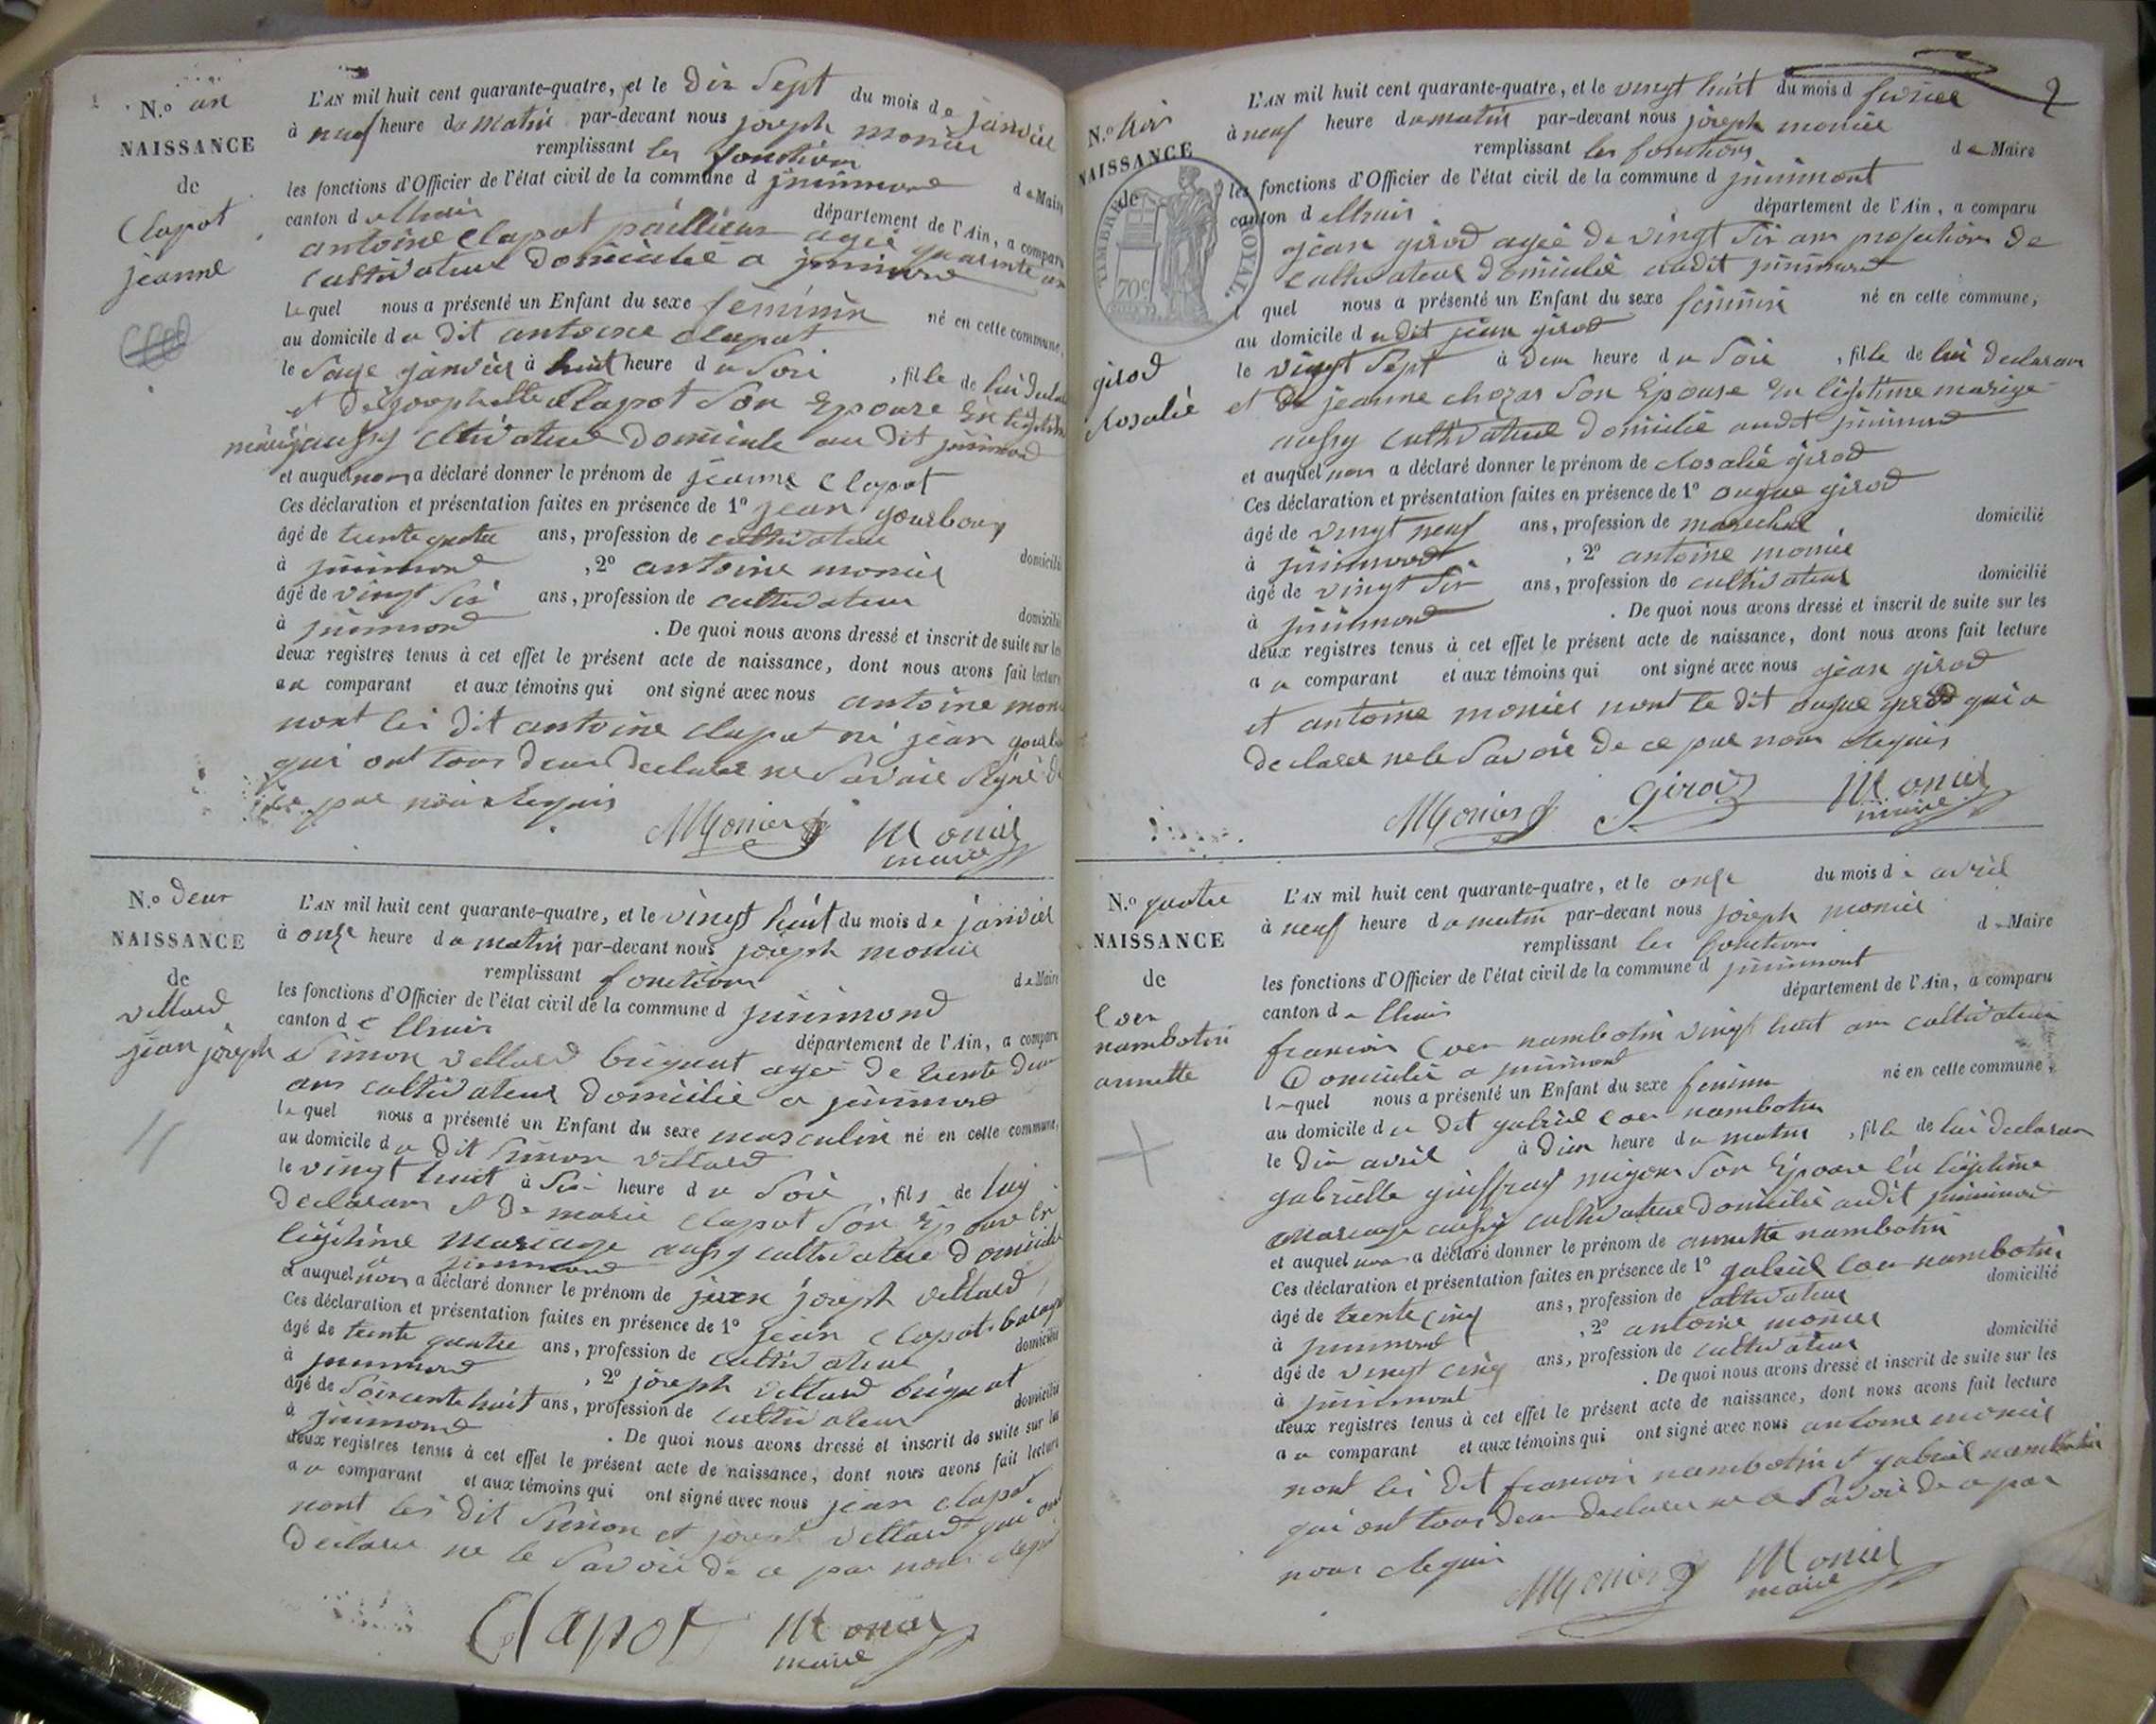 N.o un
NAISSANCE
de
Clapot
jeanne
L'AN mil huit cent quarante-quatre, et le dix Sept du mois de janvier
à neuf heure du matin par-devant nous joseph monier
remplissant les fonctions de Maire
les fonctions d'Officier de l'état civil de la commune d jujurimond
canton d lhuis département de l'Ain, a comparu
antoine Clapot agée quarente an
cultivateur domicilié a
Lequel nous a présenté un Enfant du sexe feminin né en cette commune,
au domicile du dit antoine clapot
le Saze janvier à huit heure du Soir, fille de lui
et de Clapot Son Epouse En
aussy domicile au dit
et auquel nous a déclaré donner le prénom de jeanne Clapot
Ces déclaration et présentation faites en présence de 1o jean
âgé de trente quatre ans, profession de cultivateur
à domicilié
, 2o antoine monier
âgé de vingt Six ans, profession de cultivateur
à domicilié
. De quoi nous avons dressé et inscrit de suite sur les
deux registres tenus à cet effet le présent acte de naissance, dont nous avons fait lecture
au comparant et aux témoins qui ont signé avec nous antoine
nont les dit antoine clapot ni jean
qui ont tous deux declaré ne Savoir Signé de
ce par nous Requis
Monier Monier
maire
N.o deux
NAISSANCE
de
vettard
jean joseph
L'AN mil huit cent quarante-quatre, et le vingt huit du mois de janvier
à onze heure du matin par-devant nous joseph monier
remplissant fonctions de Maire
les fonctions d'Officier de l'état civil de la commune d
canton de lhuis département de l'Ain, a comparu
Simon vettard briquat agé de trente deux
ans cultivateur domicilié a
lequel nous a présenté un Enfant du sexe masculin né en cette commune,
au domicile du dit Simon vettard
le vingt huit à Six heure du Soir, fils de luy
declarans et de marie clapot Son Epouse En
legitime mariage aussy cultivateur domicilié
a
et auquel nous a déclaré donner le prénom de jean joseph vettard
Ces déclaration et présentation faites en présence de 1o jean clapot
âgé de trente quatre ans, profession de cultivateur, domicilié
à , 2o joseph vettard briquat
âgé de Soixcente huit ans, profession de cultivateur domicilié
à
. De quoi nous avons dressé et inscrit de suite sur les
deux registres tenus à cet effet le présent acte de naissance, dont nous avons fait lecture
au comparant et aux témoins qui ont signé avec nous jean clapot
nont les dit Simon et joseph vettard qui ont
declaré ne le Savoir de ce par nous
Clapot Monier
maire
2
N.o trois
NAISSANCE
de
TIMBRE ROYAL.
70c
girod
Rosalié
L'AN mil huit cent quarante-quatre, et le vingt huit du mois d fevrier
à neuf heure du matin par-devant nous joseph monier
remplissant les fonctions de Maire
les fonctions d'Officier de l'état civil de la commune d
canton d lhuis département de l'Ain, a comparu
jean girod agée de vingt Six ans profession de
cultivateur domicilié audit
l quel nous a présenté un Enfant du sexe feminin né en cette commune,
au domicile du dit jean girod
le vingt Sept à deux heure du Soir, fille de lui declarans
et de jeanne Son Epouse En legitime mariage
aussy cultivateur domicilié audit
et auquel nous a déclaré donner le prénom de Rosalié girod
Ces déclaration et présentation faites en présence de 1o girod
âgé de vingt neuf ans, profession de marechal, domicilié
à , 2o antoine monier
âgé de vingt Six ans, profession de cultivateur domicilié
à
. De quoi nous avons dressé et inscrit de suite sur les
deux registres tenus à cet effet le présent acte de naissance, dont nous avons fait lecture
au comparant et aux témoins qui ont signé avec nous jean girod
et antoine monier nont le dit girod qui a
declaré ne le Savoir de ce par nous Requis
Monier Girod Monier
maire
N.o quatre
NAISSANCE
de
nambotin
annette
L'AN mil huit cent quarante-quatre, et le onze du mois d avril
à neuf heure du matin par-devant nous joseph monier
remplissant les fonctions de Maire
les fonctions d'Officier de l'état civil de la commune d
canton de lhuis département de l'Ain, a comparu
francois nambotin vingt huit ans cultivateur
Domicilié a
lequel nous a présenté un Enfant du sexe feminin né en cette commune,
au domicile du dit gabriel nambotin
le dix avril à dix heure du matin, fille de lui declarans
gabrielle Son Epouse En legitime
mariage aussy cultivateur domicilié audit
et auquel nous a déclaré donner le prénom de annette nambotin
Ces déclaration et présentation faites en présence de 1o gabriel nambotin
âgé de trente cinq ans, profession de cultivateur domicilié
à , 2o antoine monier
âgé de vingt cinq ans, profession de cultivateur domicilié
à
. De quoi nous avons dressé et inscrit de suite sur les
deux registres tenus à cet effet le présent acte de naissance, dont nous avons fait lecture
au comparant et aux témoins qui ont signé avec nous antoine monier
nont les dit francois nambotin et gabriel nambotin
qui ont tous deux declaré ne le Savoir de ce par
nous Requis
Monier Monier
maire